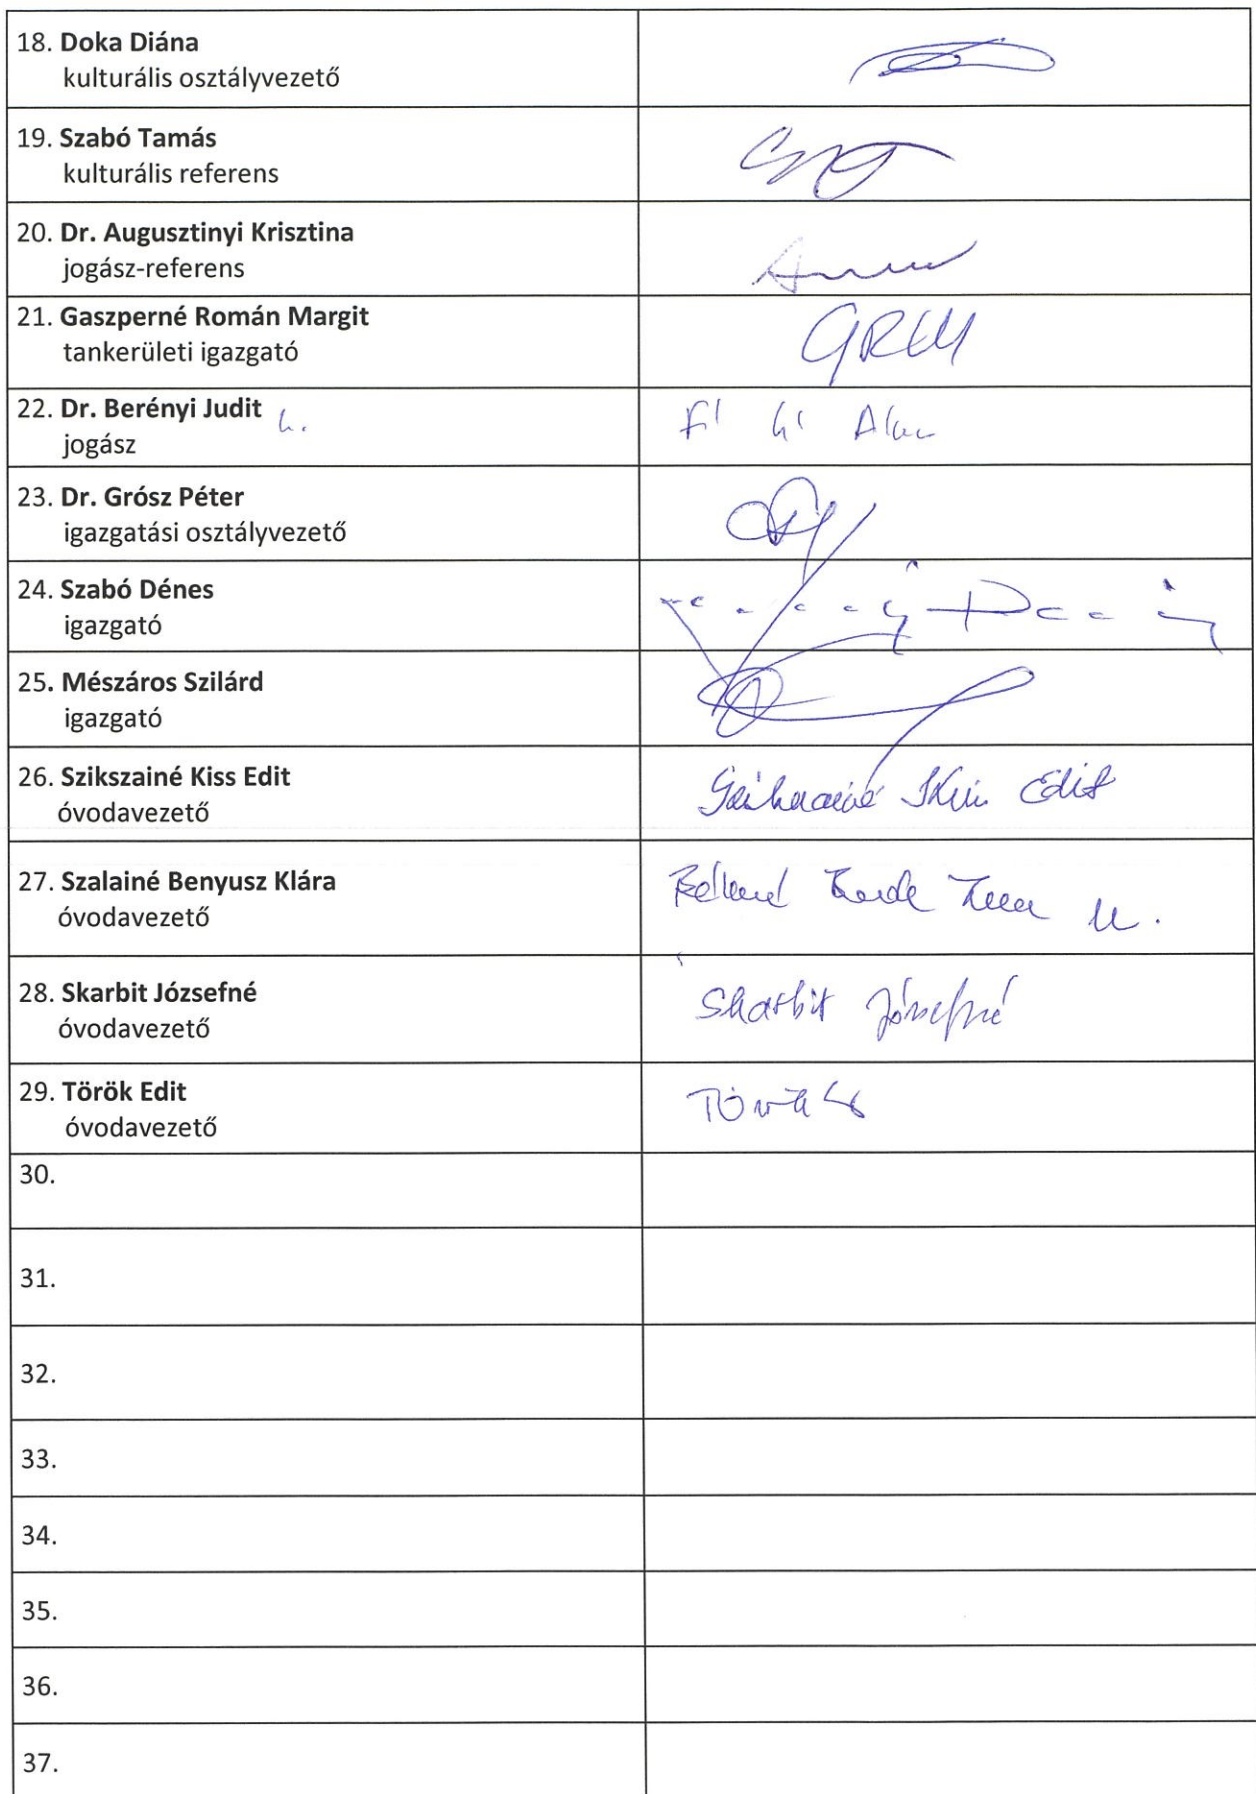 18. Doka Diána
kulturális osztályvezető
19. Szabó Tamás
kulturális referens
20. Dr. Augusztinyi Krisztina
jogász-referens
21. Gaszperné Román Margit
tankerületi igazgató
GRM
22. Dr. Berényi Judit h.
jogász
23. Dr. Grósz Péter
igazgatási osztályvezető
24. Szabó Dénes
igazgató
25. Mészáros Szilárd
igazgató
26. Szikszainé Kiss Edit
óvodavezető
Szikszainé Kiss Edit
27. Szalainé Benyusz Klára
óvodavezető
28. Skarbit Józsefné
óvodavezető
Skarbit Józsefné
29. Török Edit
óvodavezető
Török
30.
31.
32.
33.
34.
35.
36.
37.